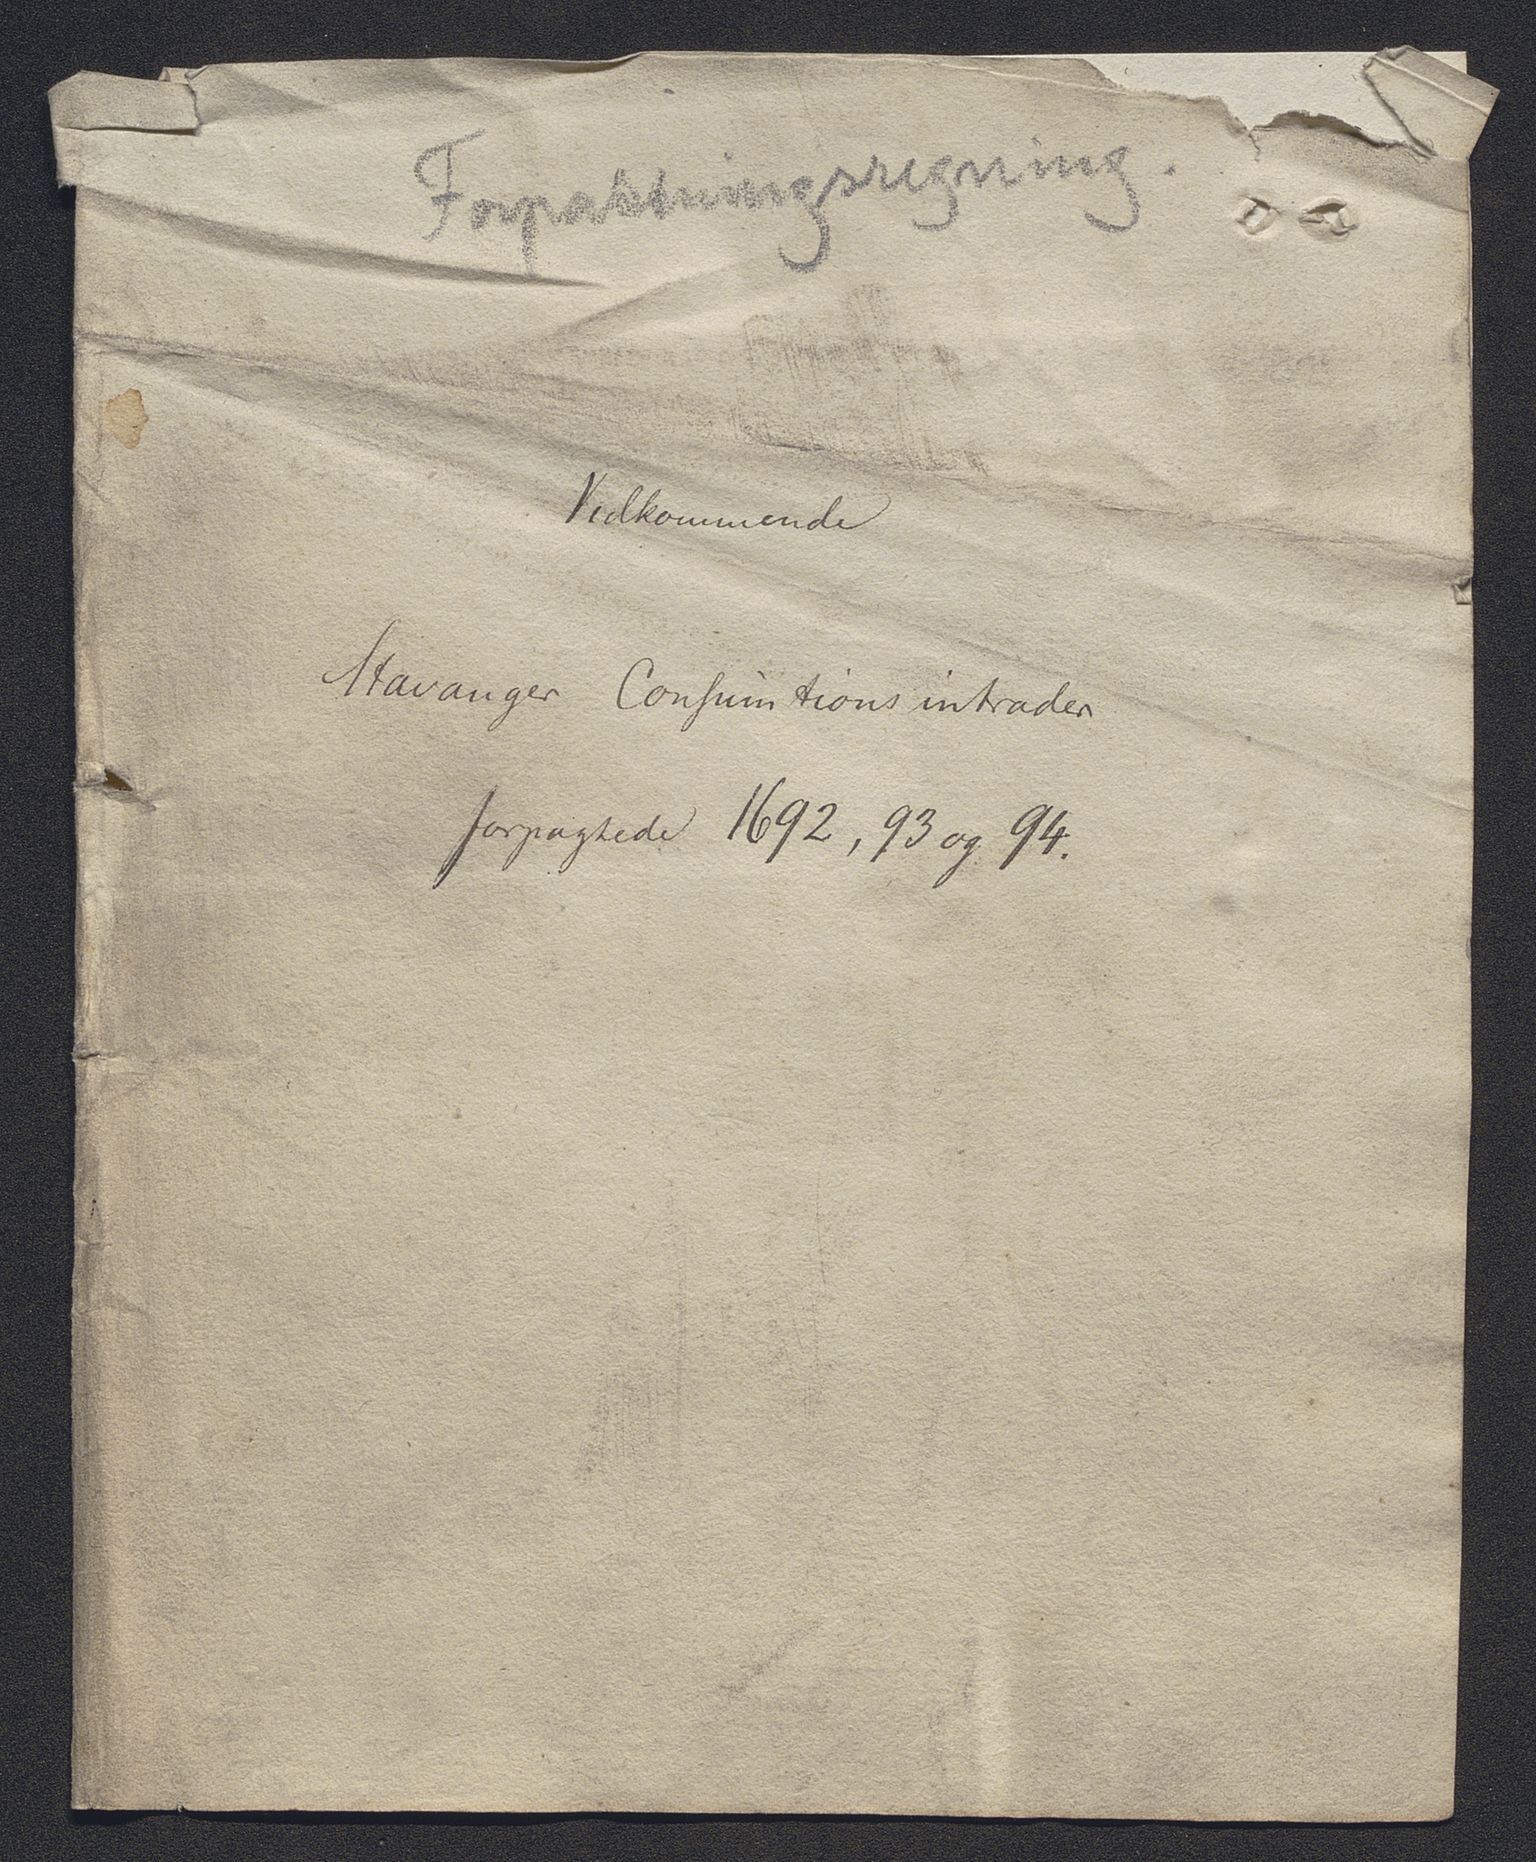 Forpaktningsregning.
Vedkommende
Stavanger Consumtions intrader
forpagtede 1692, 93 og 94.